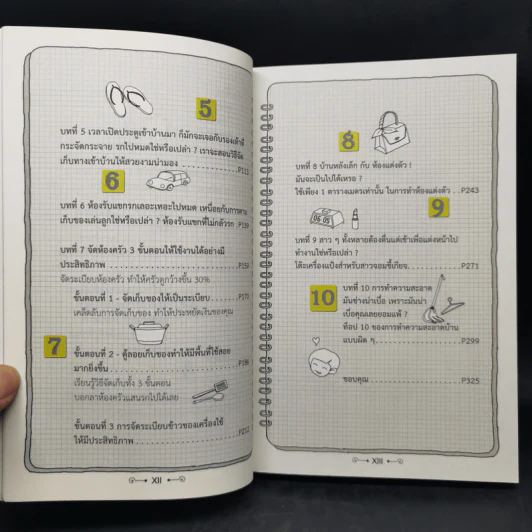 5
บทที่ 5 เวลาเปิดประตูเข้าบ้านมา ก็มักจะเจอกับรองเท้าที่
กระจัดกระจาย รกไปหมดใช่หรือเปล่า ? เราจะสอนวิธีจัด
เก็บทางเข้าบ้านให้สวยงามน่ามอง
6
บทที่ 6 ห้องรับแขกรกเลอะเทอะไปหมด เหนื่อยกับการตาม
เก็บของเล่นลูกใช่หรือเปล่า ? ห้องรับแขกที่ไม่กลัวรก
บทที่ 7 จัดห้องครัว 3 ขั้นตอนให้ใช้งานได้อย่างมี
ประสิทธิภาพ
จัดระเบียบห้องครัว ทำให้ครัวดูกว้างขึ้น 30%
ขั้นตอนที่ 1 - จัดเก็บของให้เป็นระเบียบ
เคล็ดลับการจัดเก็บของ ทำให้ประหยัดเงินของคุณ
7
ขั้นตอนที่ 2 - ตู้ลอยเก็บของทำให้มีพื้นที่ใช้สอย
มากยิ่งขึ้น
เรียนรู้วิธีจัดเก็บทั้ง 3 ขั้นตอน
บอกลาห้องครัวแสนรกไปได้เลย
ขั้นตอนที่ 3 การจัดระเบียบข้าวของเครื่องใช้
ให้มีประสิทธิภาพ
XII
8
บทที่ 8 บ้านหลังเล็ก กับ ห้องแต่งตัว !
มันจะเป็นไปได้เหรอ ?
ใช้เพียง 1 ตารางเมตรเท่านั้น ในการทำห้องแต่งตัว . . P243
9
บทที่ 9 สาว ๆ ทั้งหลายต้องตื่นแต่เช้าเพื่อแต่งหน้าไป
ทำงานใช่หรือเปล่า ?
โต๊ะเครื่องแป้งสำหรับสาวจอมขี้เกียจ. . . . . . . . . . P271
10
บทที่ 10 การทำความสะอาด
มันช่างน่าเบื่อ เพราะมันน่า
เบื่อคุณเลยยอมแพ้ ?
ที่สุด 10 ของการทำความสะอาดบ้าน
แบบผิด ๆ. . . . . . . . . . . . . . . P299
ขอบคุณ . . . . . . . . . . . . . . . . P325
XIII